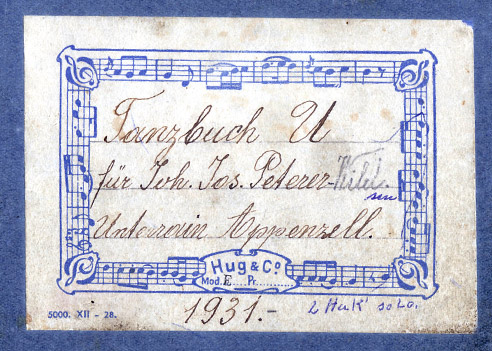 Tanzbuch U
für Joh. Jos. Peterer-
sen
Unterrain Appenzell.
Hug & Co
Mod. E Pr.
5000. XII - 28.
1931.-
solo.